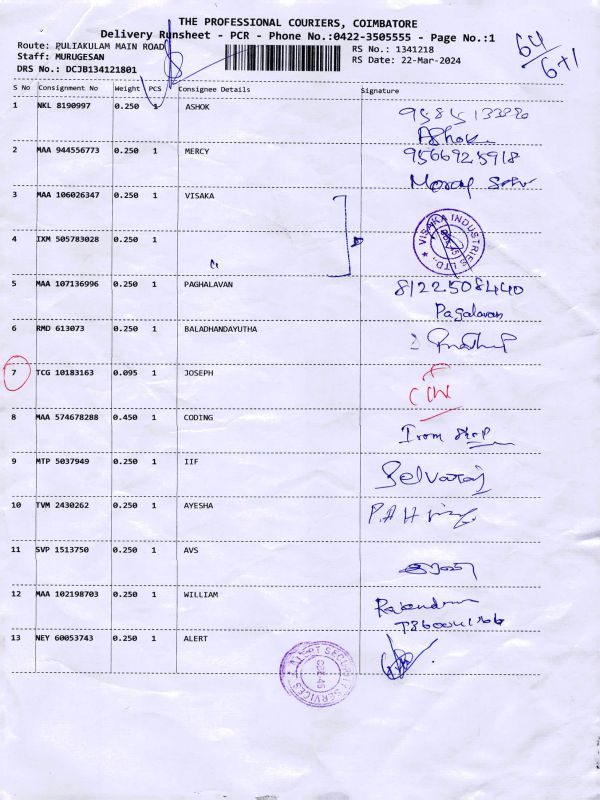 THE PROFESSIONAL COURIERS, COIMBATORE
Delivery Runsheet - PCR - Phone No.:0422-3505555 - Page No.:1
Route: PULIAKULAM MAIN ROAD
Staff: MURUGESAN
DRS No.: DCJB134121801
RS No.: 1341218
RS Date: 22-Mar-2024
64/6+1
S No Consignment No Weight PCS Consignee Details Signature
1 NKL 8190997 0.250 1 ASHOK
Ashok
2 MAA 944556773 0.250 1 MERCY 9566925918
3 MAA 106026347 0.250 1 VISAKA
VISAKA INDUSTRIES LTD.,
4 IXM 505783028 0.250 1
5 MAA 107136996 0.250 1 PAGHALAVAN 8122508440
Pagalavan
6 RMD 613073 0.250 1 BALADHANDAYUTHA
7 TCG 10183163 0.095 1 JOSEPH
8 MAA 574678288 0.450 1 CODING
From shop
9 MTP 5037949 0.250 1 IIF Selvaraj
10 TVM 2430262 0.250 1 AYESHA
11 SVP 1513750 0.250 1 AVS
12 MAA 102198703 0.250 1 WILLIAM
13 NEY 60053743 0.250 1 ALERT
ALERT SECURITY SERVICES
CBE-45